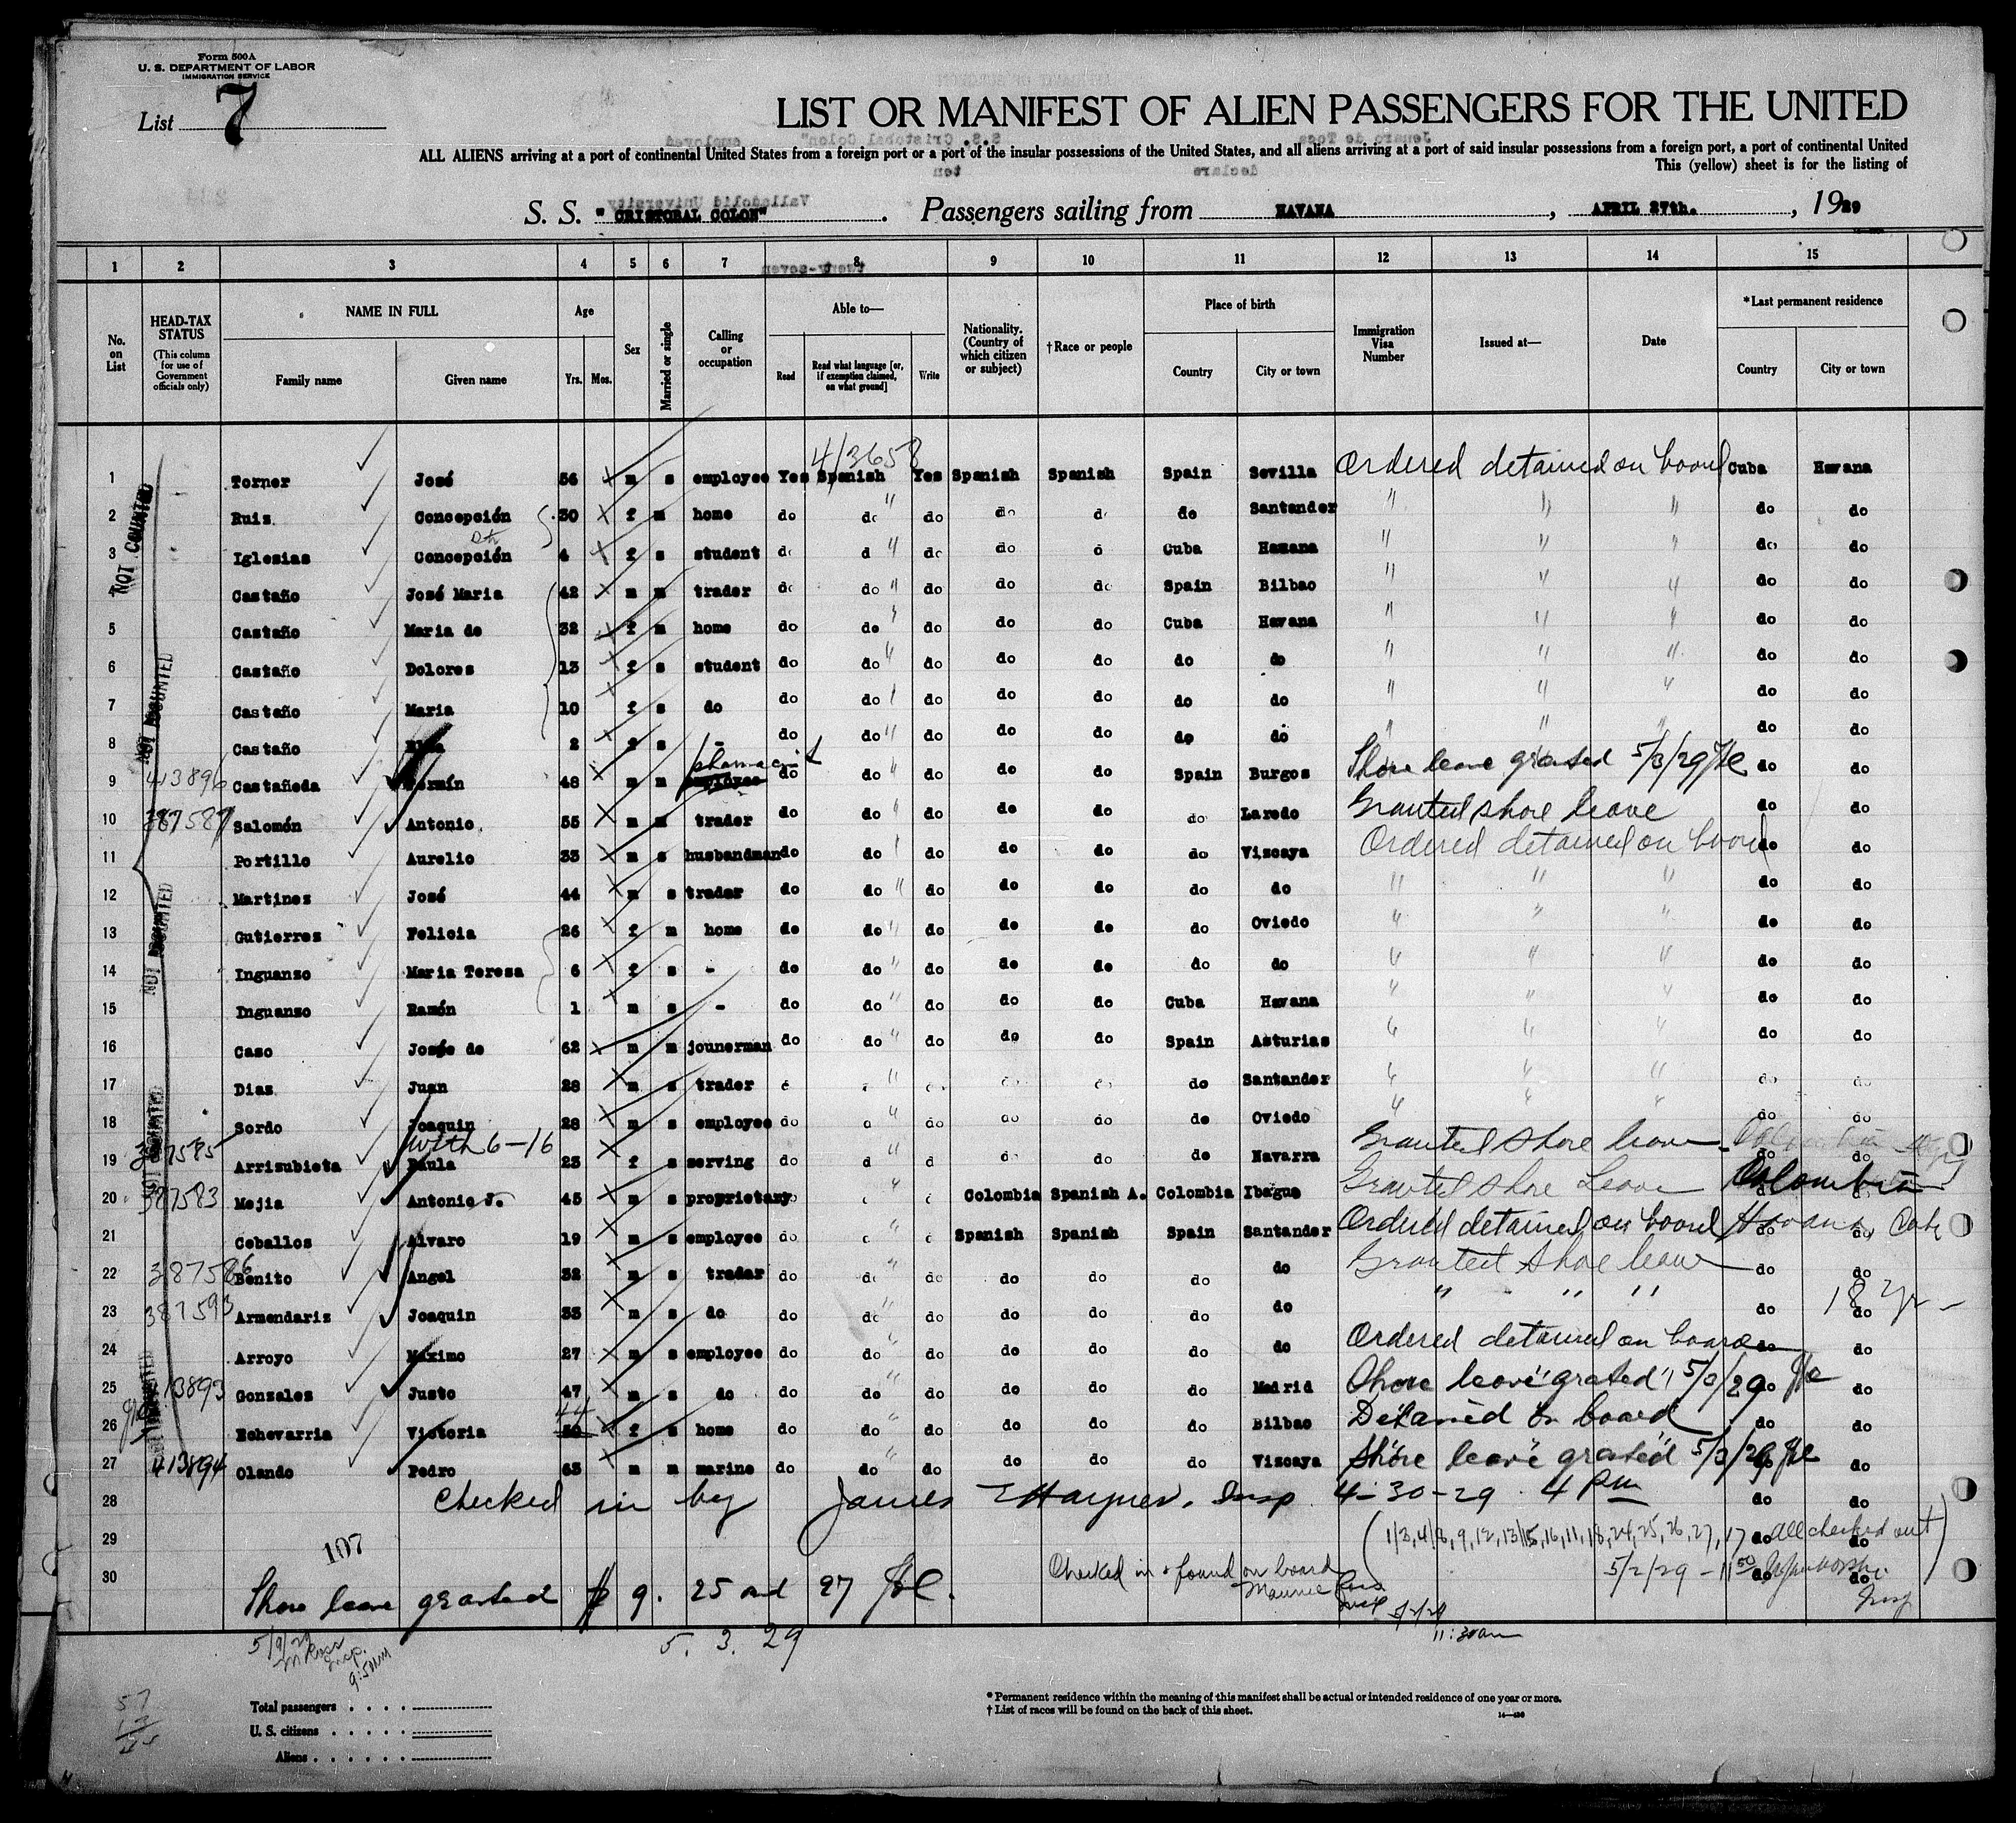 Form 500A
U. S. DEPARTMENT OF LABOR
IMMIGRATION SERVICE
List 7
LIST OR MANIFEST OF ALIEN PASSENGERS FOR THE UNITED
ALL ALIENS arriving at a port of continental United States from a foreign port or a port of the insular possessions of the United States, and all aliens arriving at a port of said insular possessions from a foreign port, a port of continental United
This (yellow) sheet is for the listing of
S. S. "CRISTOBAL COLON". Passengers sailing from HAVANA, APRIL 27th., 1929
1 2 3 4 5 6 7 8 9 10 11 12 13 14 15
No. on List
HEAD-TAX STATUS (This column for use of Government officials only)
NAME IN FULL Family name Given name
Age Yrs. Mos.
Sex
Married or single
Calling or occupation
Able to— Read Read what language [or, if exemption claimed, on what ground] Write
Nationality. (Country of which citizen or subject)
†Race or people
Place of birth Country City or town
Immigration Visa Number
Issued at—
Date
*Last permanent residence Country City or town
413658
1 Torner José 56 m s employee Yes Spanish Yes Spanish Spanish Spain Sevilla Ordered detained on board Cuba Havana
2 Ruiz Concepción 30 f m home do do " do do do do Santander " " " do do
3 Iglesias Concepción 4 f s student do do " do do do Cuba Havana " " " do do
4 Castaño José Maria 42 m m trader do do " do do do Spain Bilbao " " " do do
5 Castaño Maria de 32 f m home do do " do do do Cuba Havana " " " do do
6 Castaño Dolores 13 f s student do do " do do do do do " " " do do
7 Castaño Maria 10 f s do do do " do do do do do " " " do do
8 Castaño 2 f s - do do " do do do do do " " " do do
pharmacist
9 413896 Castañeda Fermín 48 m m employee do do " do do do Spain Burgos Shore leave granted 5/3/29 do do
10 387587 Salomón Antonio 55 m m trader do do " do do do do Laredo Granted shore leave do do
11 Portillo Aurelio 33 m s husbandman do do " do do do do Viscaya Ordered detained on board do do
12 Martinez José 44 m s trader do do " do do do do do " " " do do
13 Gutierrez Felicia 26 f m home do do " do do do do Oviedo " " " do do
14 Inguanzo Maria Teresa 6 f s - do do " do do do do do " " " do do
15 Inguanzo Ramón 1 m s - do do " do do do Cuba Havana " " " do do
16 Caso Josée de 62 m m jounerman do do " do do do Spain Asturias " " " do do
17 Dias Juan 28 m s trader do do " do do do do Santander " " " do do
18 Sordo Joaquin 28 m s employee do do " do do do do Oviedo " " " do do
with 6-16
19 387585 Arrizubieta Paula 23 f s serving do do " do do do do Navarra Granted shore leave do do
20 387583 Mejia Antonio J. 45 m s proprietary do " do Colombia Spanish A. Colombia Ibague Granted shore leave Colombia
21 Ceballos Alvaro 19 m s employee do do " do Spanish Spanish Spain Santander Ordered detained on board Havana, Cuba do do
22 387586 Benito Angel 32 m s trader do do " do do do do do Granted shore leave do do
23 387593 Armendariz Joaquin 33 m s do do do " do do do do do " " " do do 18 yr -
24 Arroyo Máximo 27 m s employee do do " do do do do do Ordered detained on board do do
25 413893 Gonzalez Justo 47 m s do do do " do do do do Madrid Shore leave granted 5/3/29 do do
44
26 Echevarria Victoria 50 f s home do do " do do do do Bilbao Detained on board do do
27 413894 Olando Pedro 63 m m marine do do " do do do do Viscaya Shore leave granted 5/3/29 do do
28 Checked in by James Haynes, Insp 4-30-29 4 PM do do
29 107 (1/3,4/8,9,12,13/15,16,11,18,24,25,26,27,17 do all checked out) do
30 Checked in & found on board Maurice Ross Insp 5/2/29 11:30am 5/2/29 - 11 50 do do Insp
Shore leave granted # 9. 25 and 27
5. 3. 29
5/9/29 M Ross Insp. 9:50AM
Total passengers
U. S. citizens
Aliens
* Permanent residence within the meaning of this manifest shall be actual or intended residence of one year or more.
† List of races will be found on the back of this sheet.
NOT COUNTED
NOT COUNTED
NOT COUNTED
NOT COUNTED
NOT COUNTED